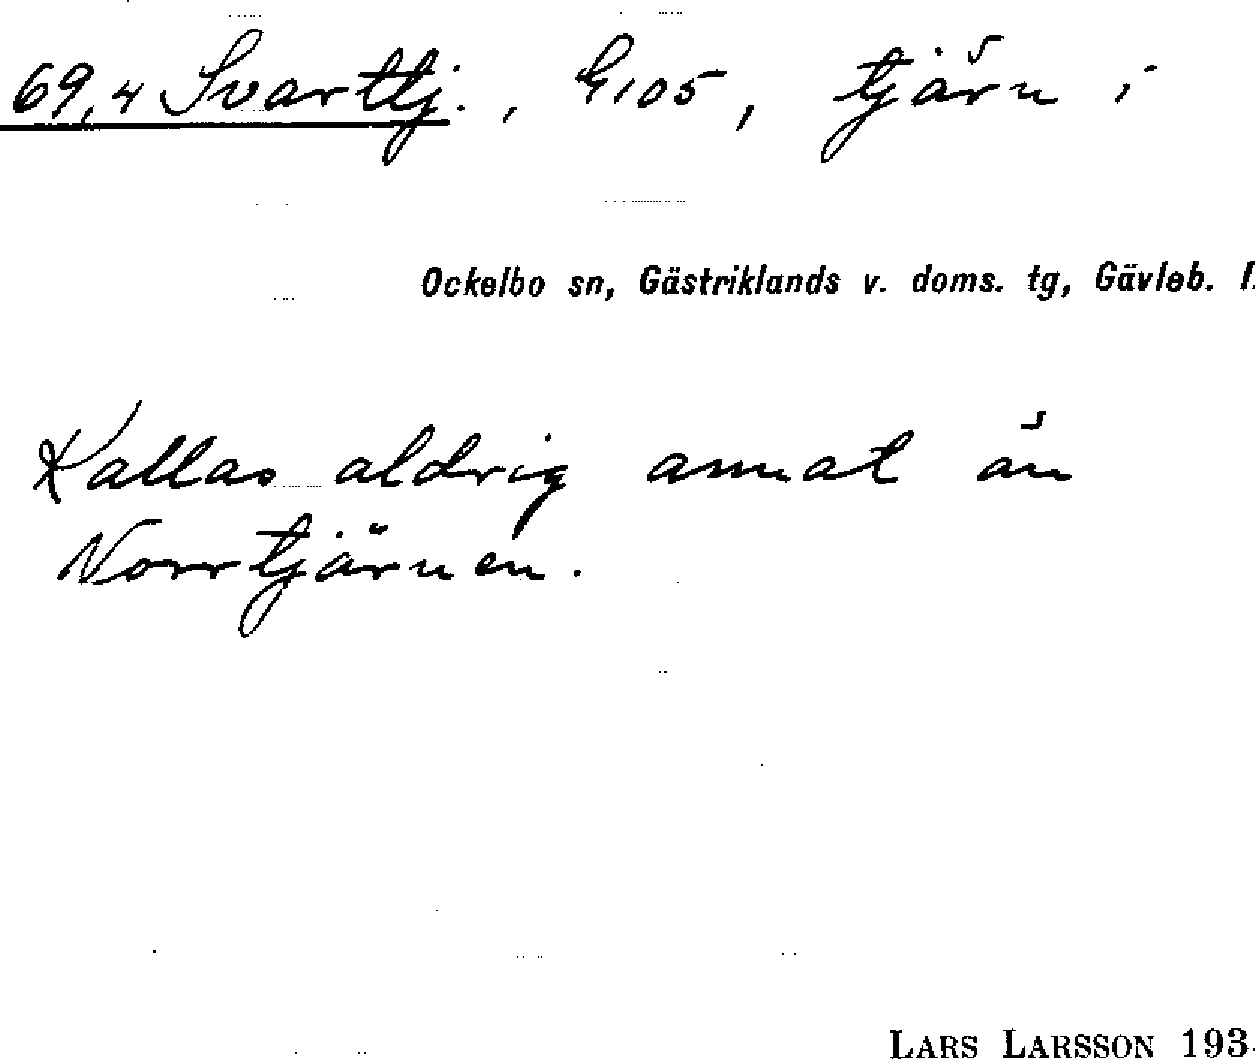 69,4 Svarttj., G105, tjärn i
Ockelbo sn, Gästriklands v. doms. tg, Gävleb. l.
Kallas aldrig annat än
Norrtjärnen.
LARS LARSSON 193